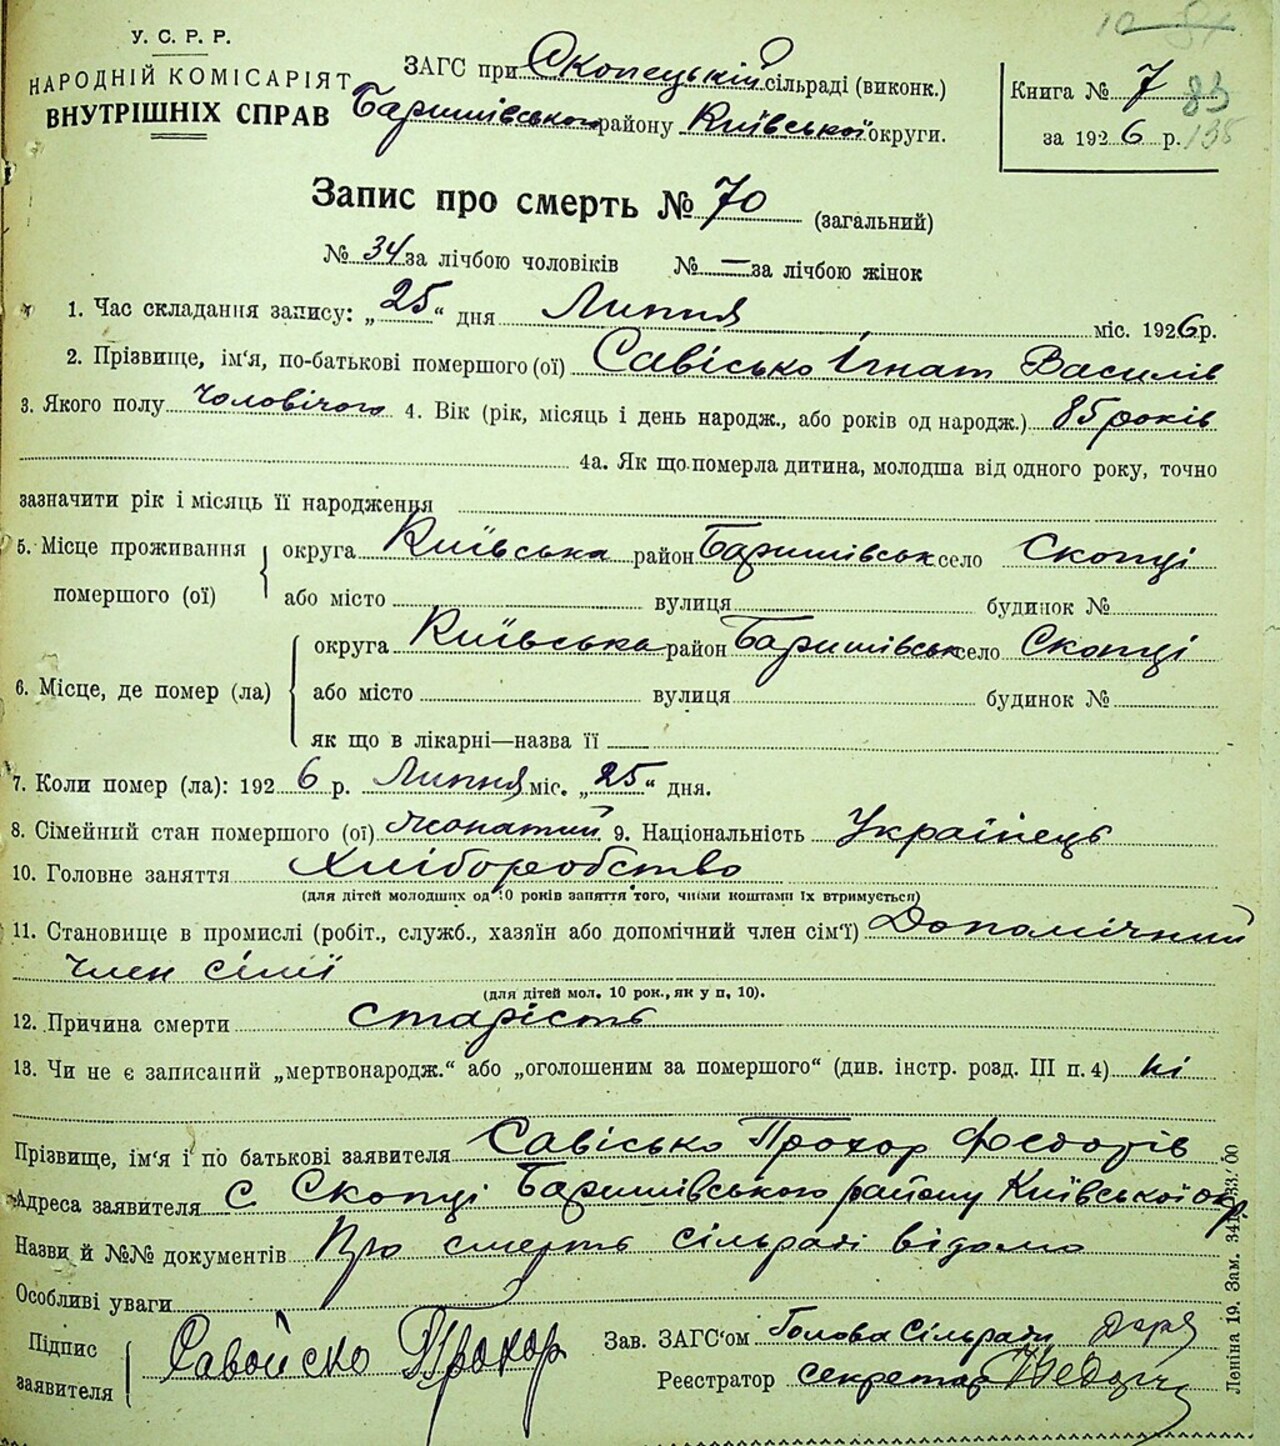 У. С. Р. Р.
НАРОДНІЙ КОМІСАРІЯТ
ВНУТРІШНІХ СПРАВ
ЗАГС при Скопецькій сільраді (виконк.)
Баришівського району Київської округи.
Книга № 7 83
за 1926 р. 135
Запис про смерть № 70 (загальний)
№ 34 за лічбою чоловіків № — за лічбою жінок
1. Час складання запису: „25“ дня Липня міс. 1926 р.
2. Прізвище, ім'я, по-батькові помершого (ої) Савісько Ігнат Василів
3. Якого полу чоловічого 4. Вік (рік, місяць і день народж., або років од народж.) 85 років
4а. Як що померла дитина, молодша від одного року, точно
зазначити рік і місяць її народження
5. Місце проживання помершого (ої)
округа Київська район Баришівськ село Скопці
або місто вулиця будинок №
6. Місце, де помер (ла)
округа Київська район Баришівськ село Скопці
або місто вулиця будинок №
як що в лікарні—назва її
7. Коли помер (ла): 1926 р. Липня міс. „25“ дня.
8. Сімейний стан помершого (ої) жонатий 9. Національність Українець
10. Головне заняття Хліборобство
(для дітей молодших од 10 років заняття того, чиїми коштами їх втримується)
11. Становище в промислі (робіт., служб., хазяїн або допомічний член сім'ї) Допомічний
член сімії
(для дітей мол. 10 рок., як у п. 10).
12. Причина смерти старість
13. Чи не є записаний „мертвонародж.“ або „оголошеним за помершого“ (див. інстр. розд. III п. 4) ні
Прізвище, ім'я і по батькові заявителя Савісько Прохор Федорів
Адреса заявителя С Скопці Баришівського району Київської окр.
Назви й №№ документів Про смерть сільраді відомо
Особливі уваги
Підпис заявителя Савойско Прохор
Зав. ЗАГС'ом Голова Сільради
Реєстратор секретар
Леніна 19. Зам.